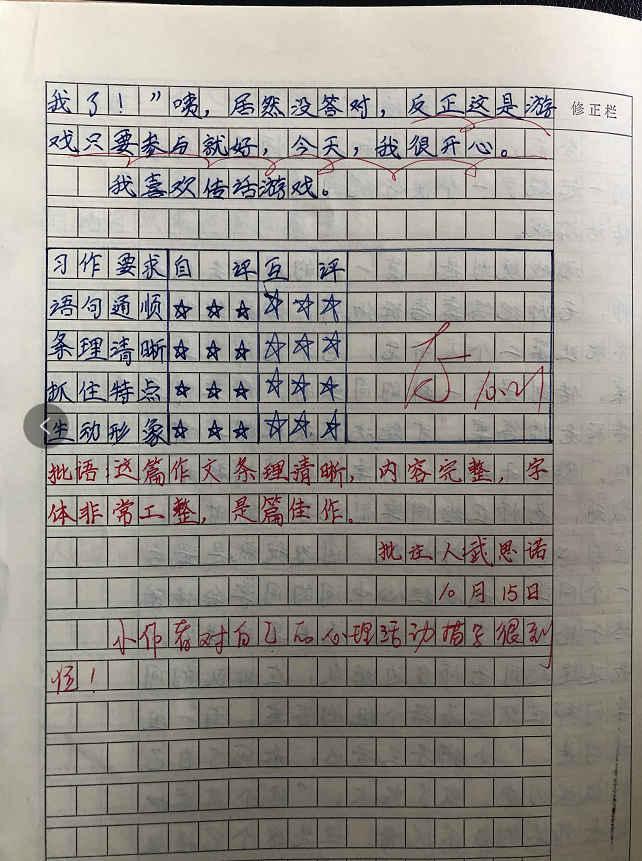 我了！”咦，居然没答对，反正这是游
修正栏
戏只要参与就好，今天，我很开心。
我喜欢传话游戏。
习作要求自评互评
语句通顺☆☆☆☆☆☆
条理清晰☆☆☆☆☆☆
抓住特点☆☆☆☆☆☆
生动形象☆☆☆☆☆☆
10.21
批语：这篇作文条理清晰，内容完整，字
体非常工整，是篇佳作。
批注人：武思诺
10月15日
小作者对自己的心理活动描写很到
位！